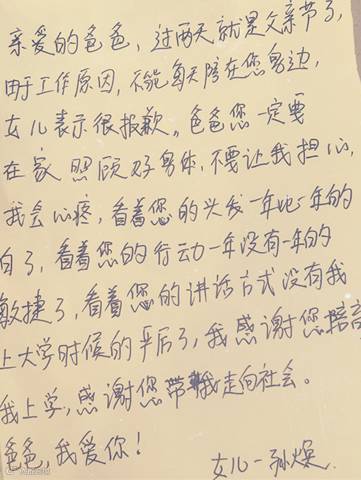 亲爱的爸爸，过两天就是父亲节了，
由于工作原因，不能每天陪在您身边，
女儿表示很抱歉。爸爸您一定要
在家照顾好身体，不要让我担心，
我会心疼，看着您的头发一年比一年的
白了，看着您的行动一年没有一年的
敏捷了，看着您的讲话方式没有我
上大学时候的严厉了，我感谢您培育
我上学，感谢您带我走向社会。
爸爸，我爱你！
女儿-孙燥